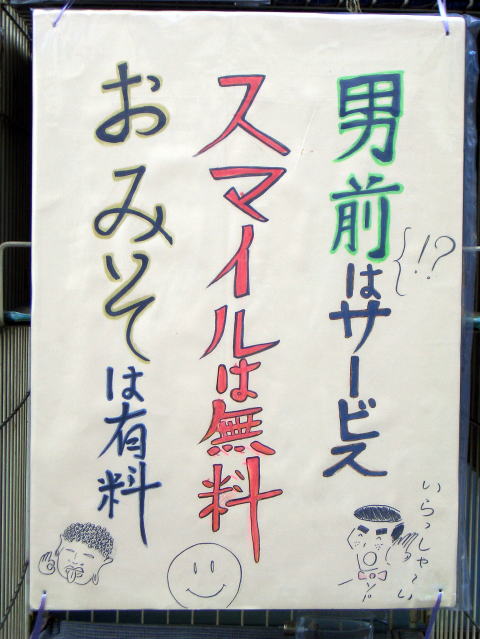 男前はサービス
!?
スマイルは無料
おみそは有料
いらっしゃ〜い